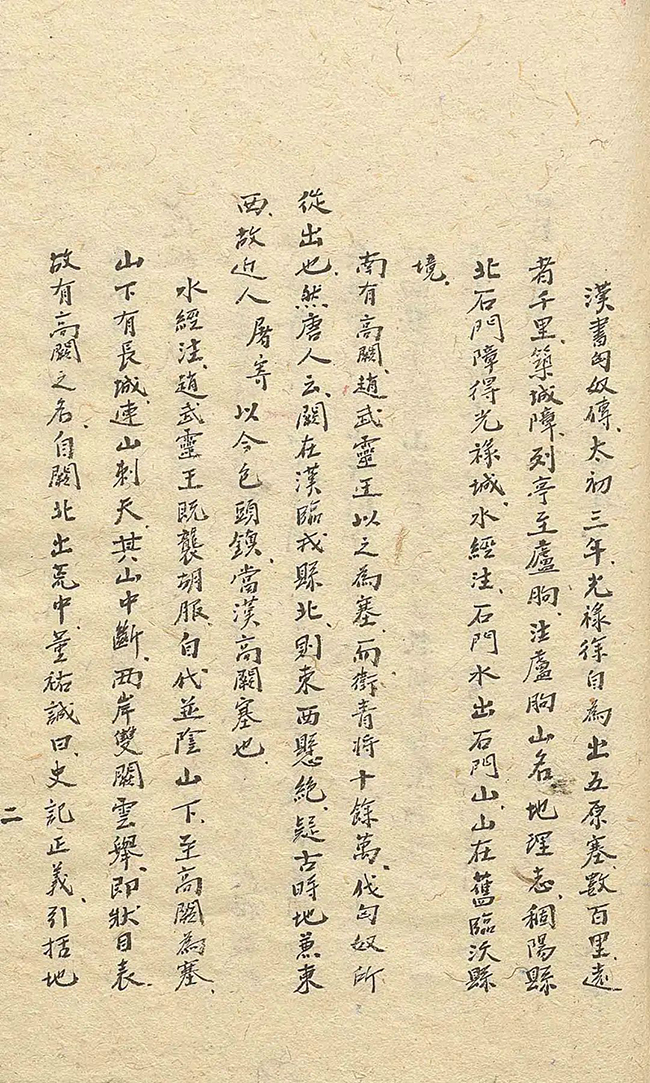 漢書匈奴傳、太初三年、光祿徐自為出五原塞、數百里、遠
者千里、築城障、列亭至盧朐、注盧朐山名、地理志、稒陽縣
北石門障得光祿城、水經注、石門水出石門山、山在舊臨沃縣
境、
南有高闕、趙武靈王以之為塞、而衛青將十餘萬、伐匈奴所
從出也、然唐人云、闕在漢臨戎縣北、則東西懸絕、疑古時地兼東
西、故近人屠寄以今包頭鎮、當漢高闕塞也、
水經注、趙武靈王既襲胡服、自代並陰山下、至高闕為塞、
山下有長城、連山刺天、其山中斷、兩岸雙闕雲舉、即狀目表、
故有高闕之名、自闕北出荒中、董祐誠曰、史記正義、引括地
二